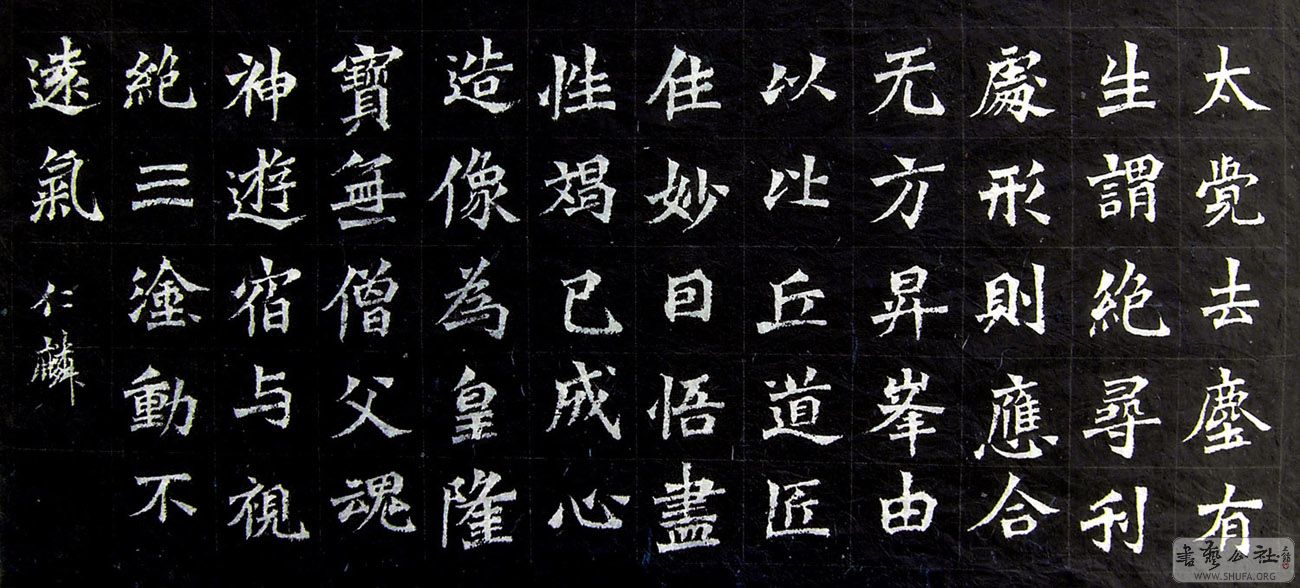 太覺去塵有
生謂絕尋利
處形則應合
无方昇峯由
以比丘道匠
住妙日悟盡
性竭已成心
造像為皇隆
寶無僧父魂
神遊宿与視
絕三塗動不
遠氣 仁麟
書藝公社
WWW.SHUFA.ORG